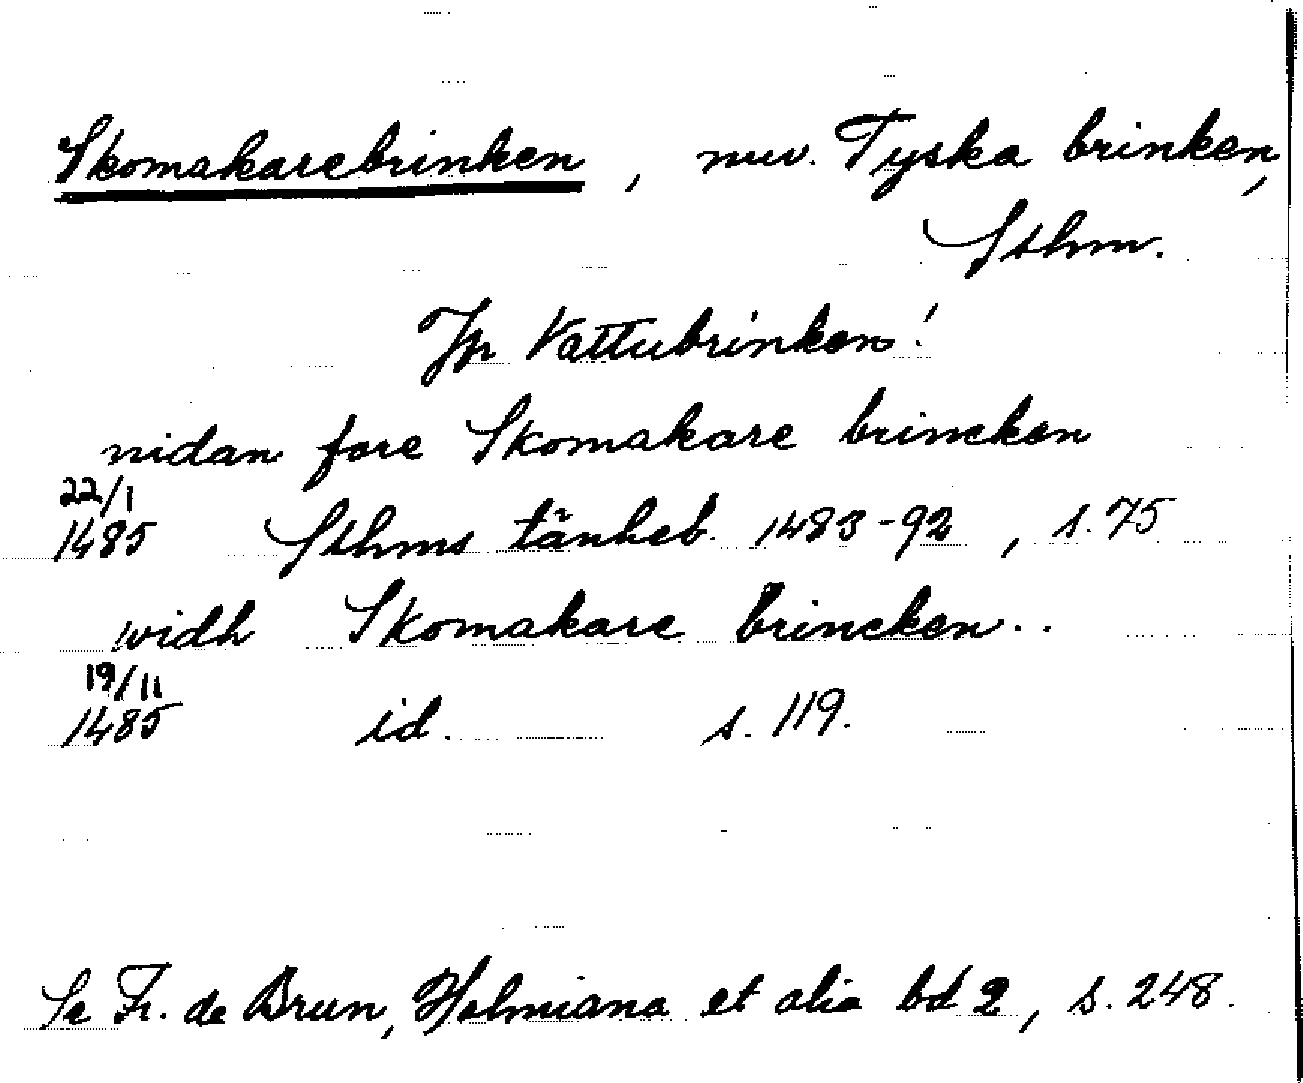 Skomakarebrinken, nuv. Tyska brinken,
Sthm.
Jfr Vattubrinken!
nidan fore Skomakare brincken
22/1
1485 Sthms tänkeb. 1483-92, s. 75
widh Skomakare brincken..
19/11
1485 id. s. 119.
Se Fr. de Brun, Holmiana et alia bd 2, s. 248.